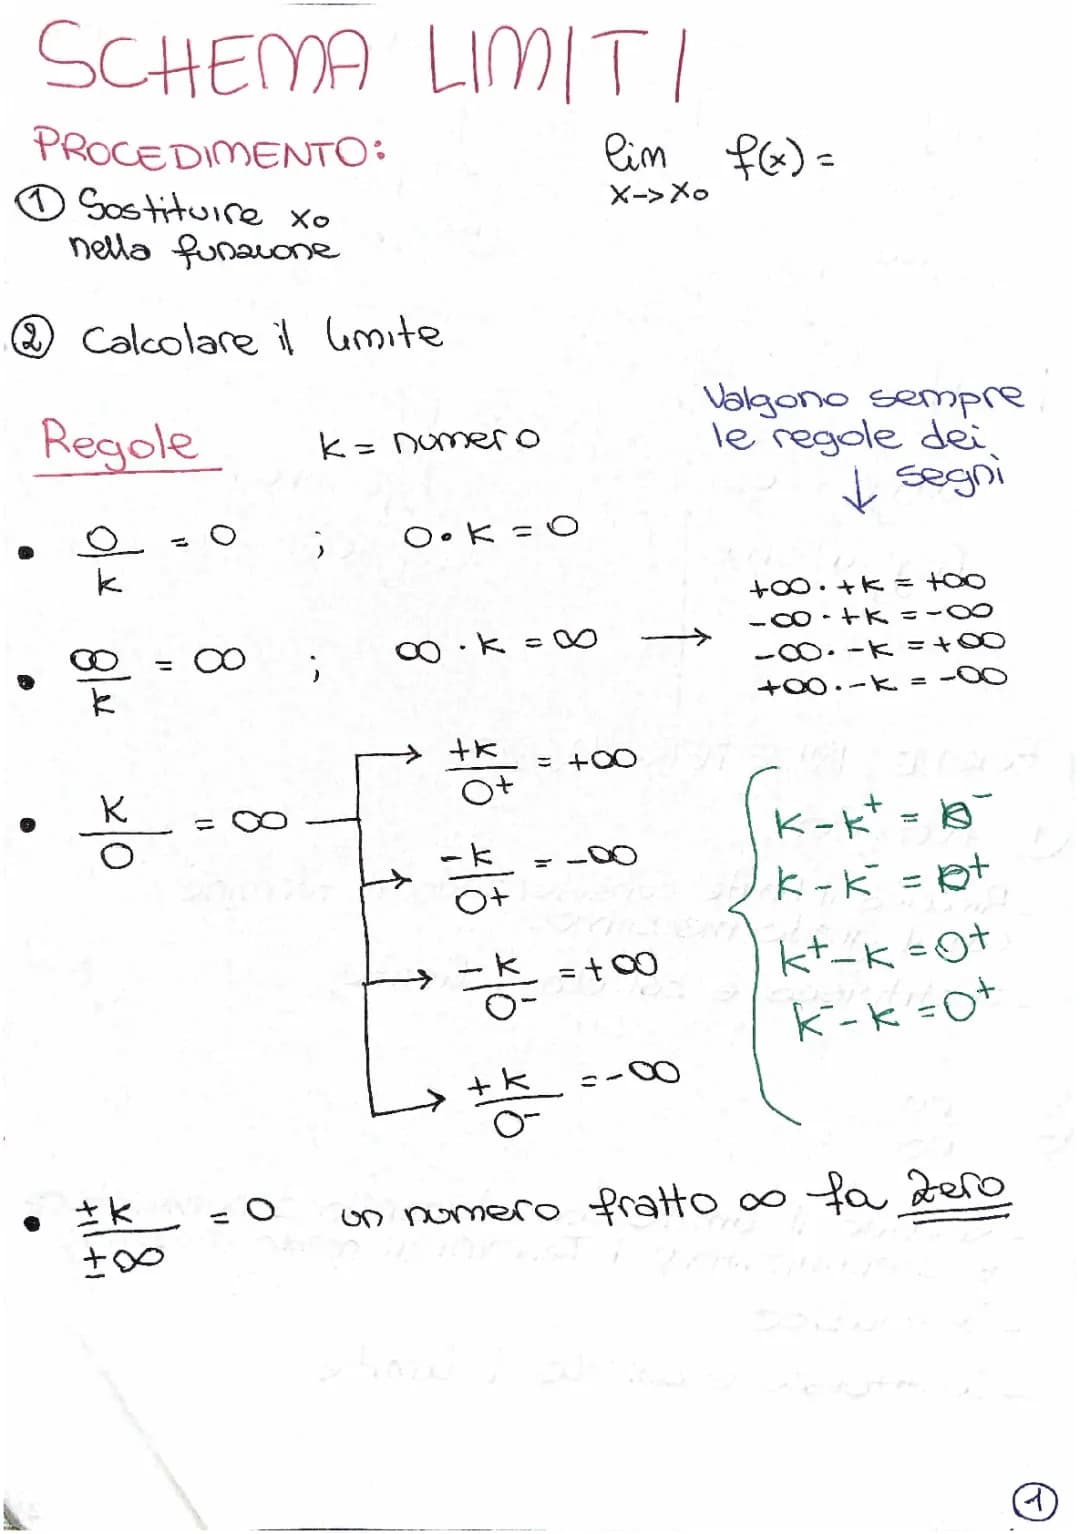 SCHEMA LIMITI
PROCEDIMENTO:
lim f(x) =
x->x₀
① Sostituire x₀
nella funzione
② Calcolare il limite
Valgono sempre
le regole dei
↓ segni
Regole
k = numero
• 0/k = 0 ; 0 • k = 0
• ∞/k = ∞ ; ∞ · k = ∞ →
+∞ · +k = +∞
-∞ · +k = -∞
-∞ · -k = +∞
+∞ · -k = -∞
• k/0 = ∞
→ +k/0⁺ = +∞
→ -k/0⁺ = -∞
→ -k/0⁻ = +∞
→ +k/0⁻ = -∞
k - k⁺ = 0⁻
k - k⁻ = 0⁺
k⁺ - k = 0⁺
k⁻ - k = 0⁺
• ±k/±∞ = 0 un numero fratto ∞ fa zero
①